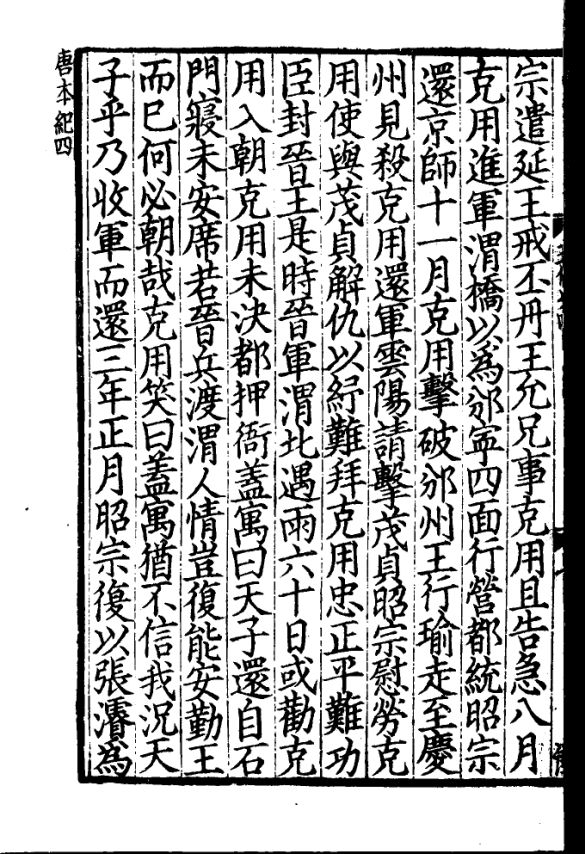 宗遣延王戒丕丹王允兄事克用且告急八月
克用進軍渭橋以爲邠寧四面行營都統昭宗
還京師十一月克用擊破邠州王行瑜走至慶
州見殺克用還軍雲陽請擊茂貞昭宗慰勞克
用使與茂貞解仇以紓難拜克用忠正平難功
臣封晉王是時晉軍渭北遇雨六十日或勸克
用入朝克用未決都押衙蓋寓曰天子還自石
門寢未安席若晉兵渡渭人情豈復能安勤王
而已何必朝哉克用笑曰蓋寓猶不信我況天
子乎乃收軍而還三年正月昭宗復以張濬爲
唐本紀四